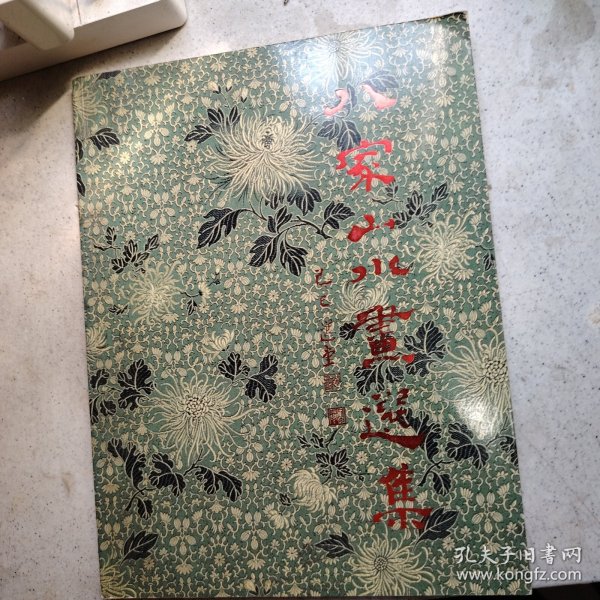 八家山水畫選集
孔夫子旧書网
www.kongfz.com